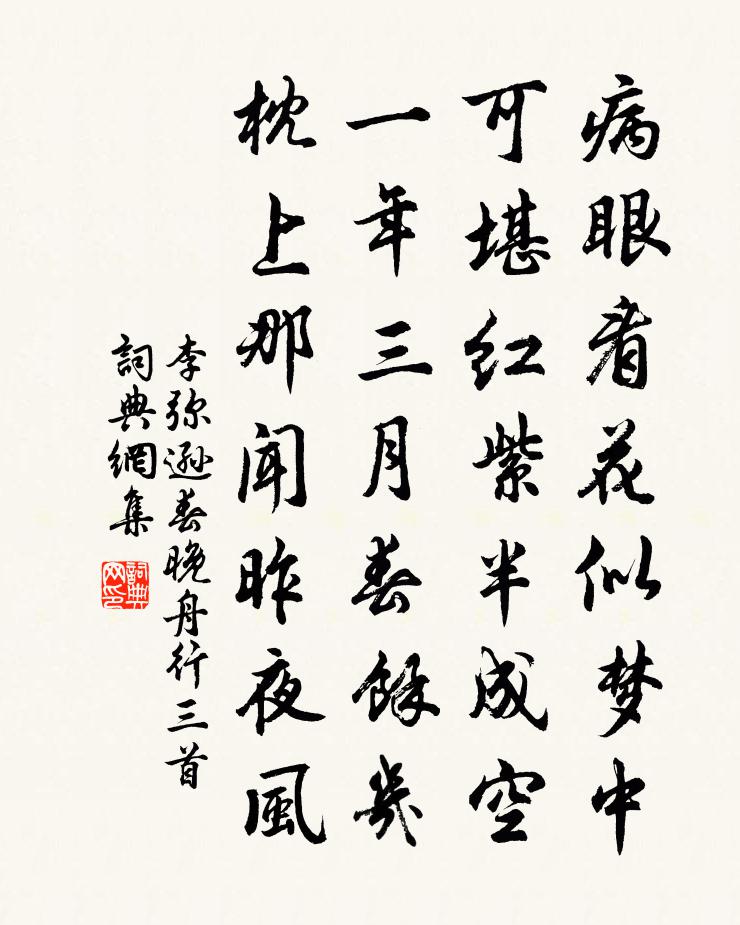 病眼看花似梦中
可堪红紫半成空
一年三月春餘幾
枕上那聞昨夜風
李弥遜春晚舟行三首
詞典網集
詞典网印